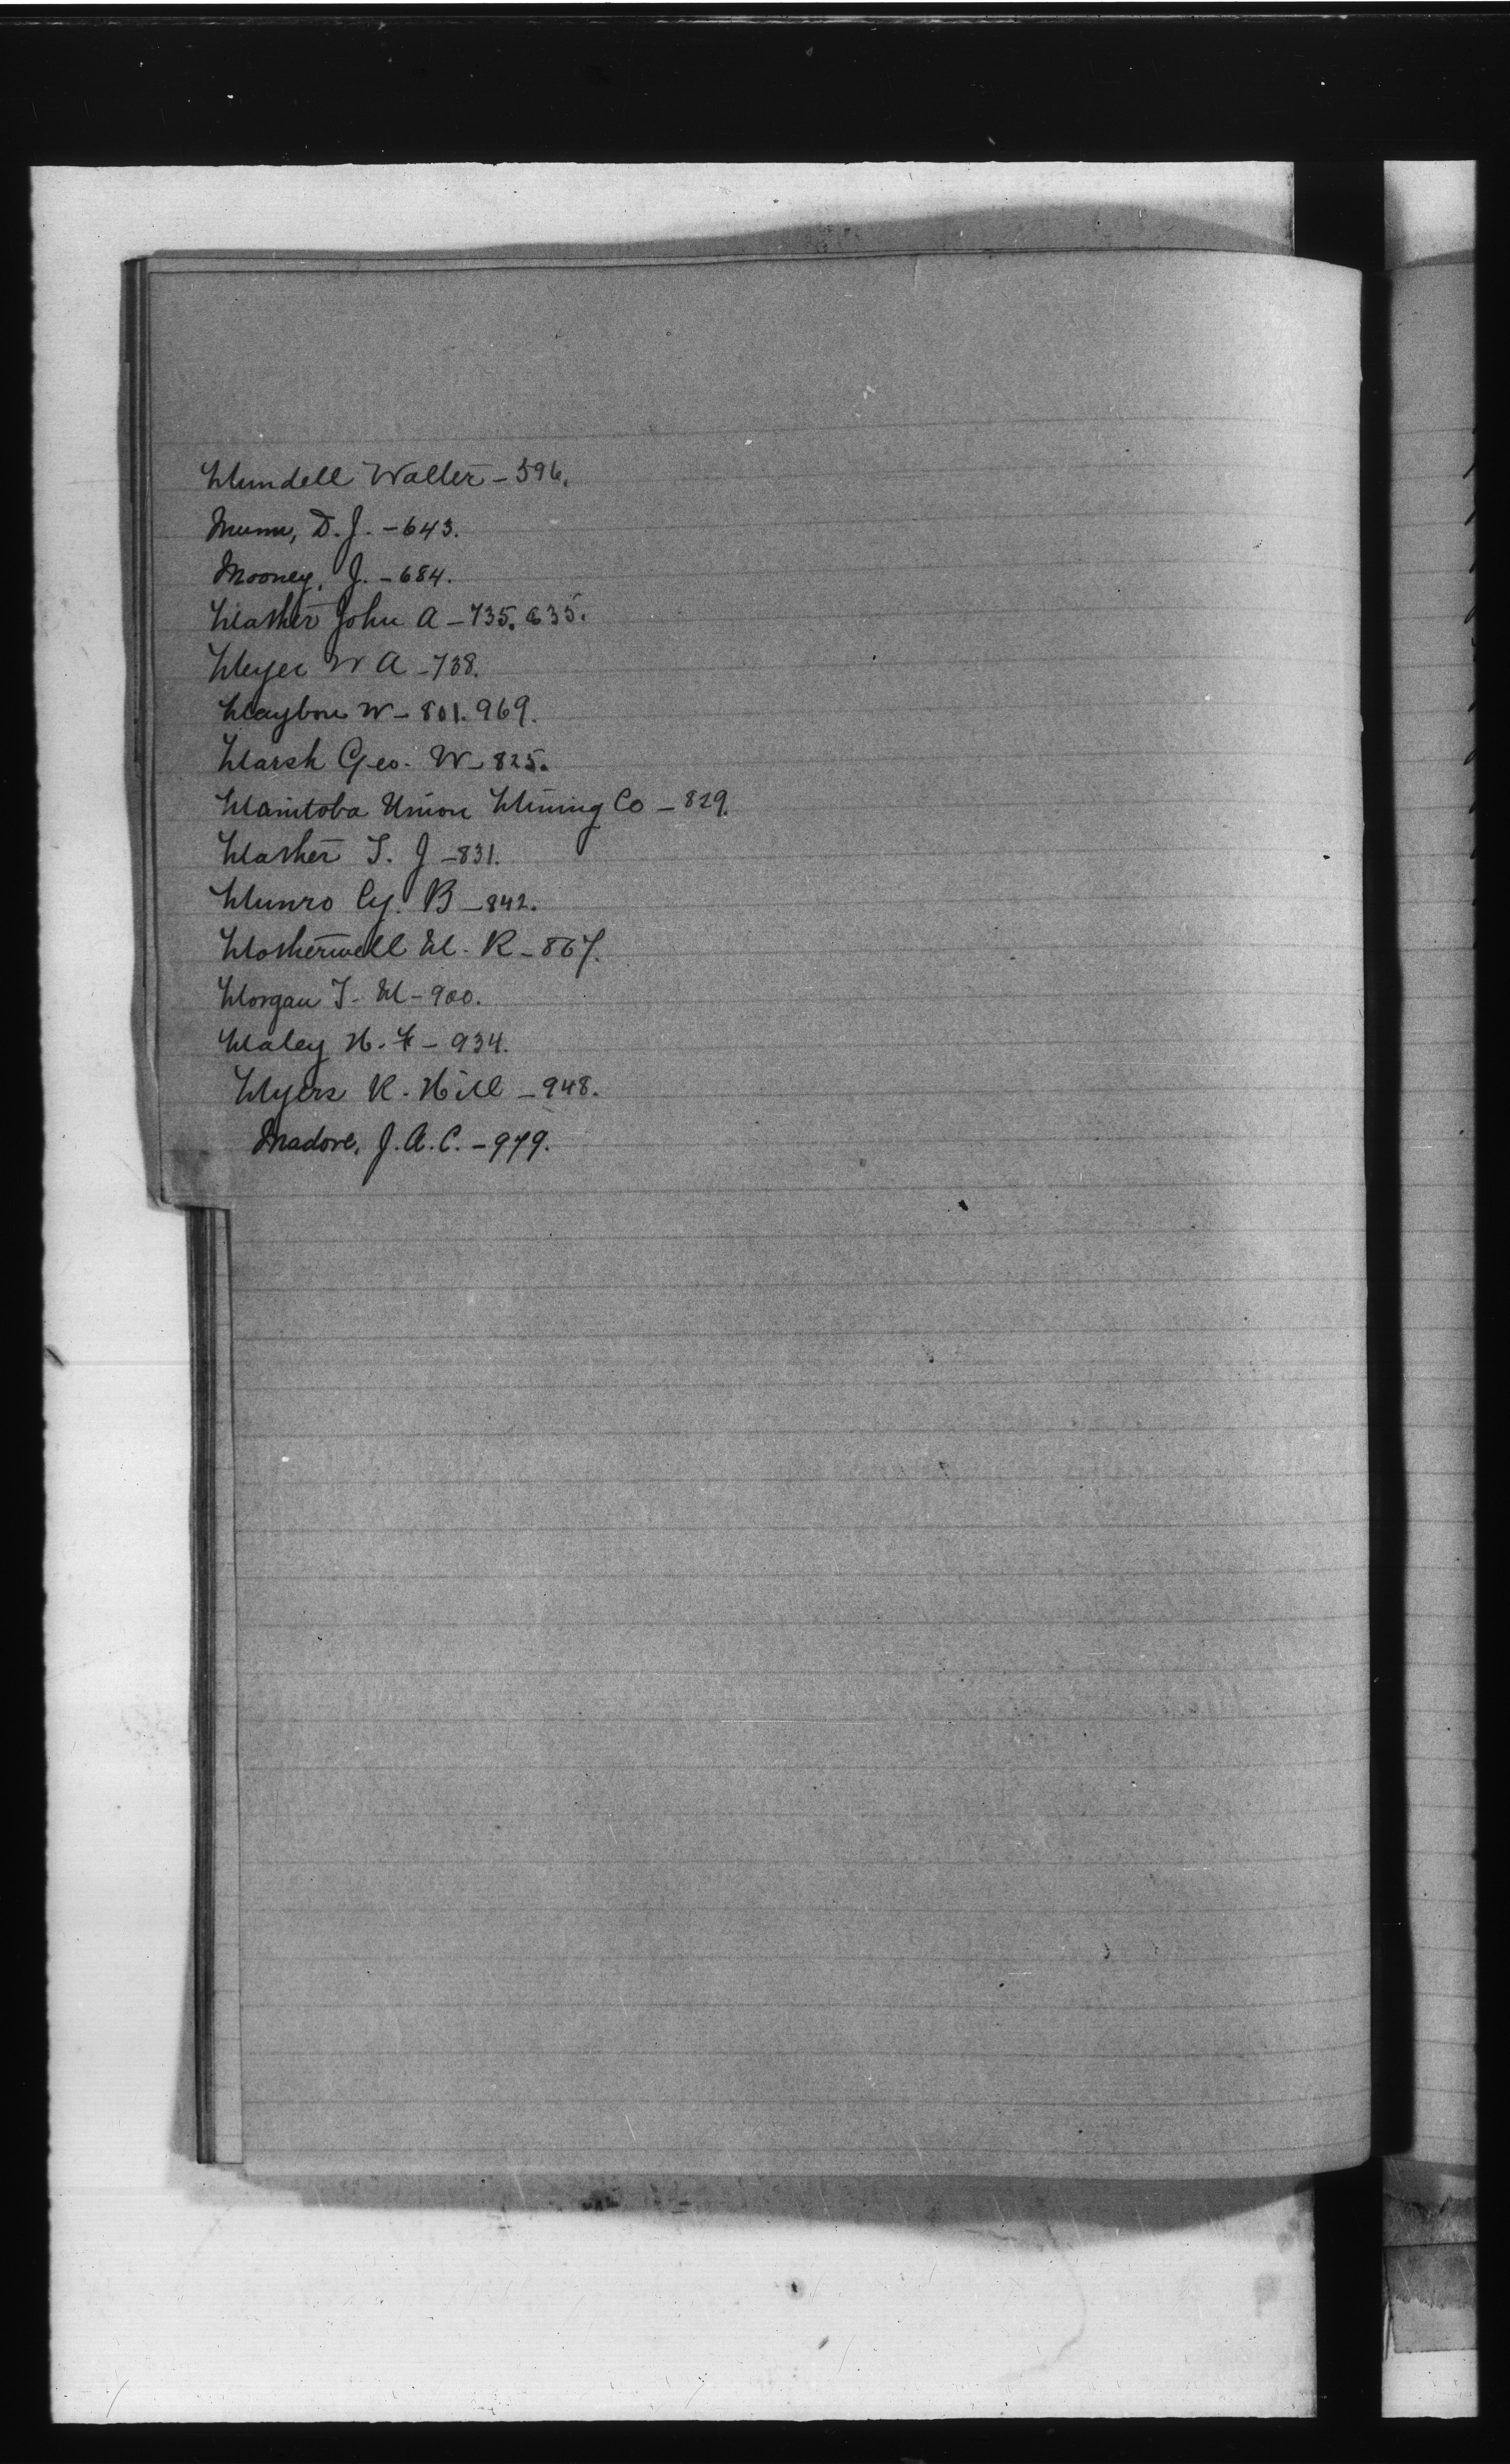 Mundell Walter - 596.
Munn, D. J. - 643.
Mooney, J. - 684.
Mather John A - 735. 635.
Meyer W A - 738.
Maybou W - 801. 969.
Marsh Geo. W - 825.
Manitoba Union Mining Co - 829.
Mather T. J - 831.
Munro Cy. B - 842.
Motherwell M. R - 867.
Morgan T. M - 900.
Maley H. F - 934.
Myers R. Hill - 948.
Madore, J. A. C. - 979.